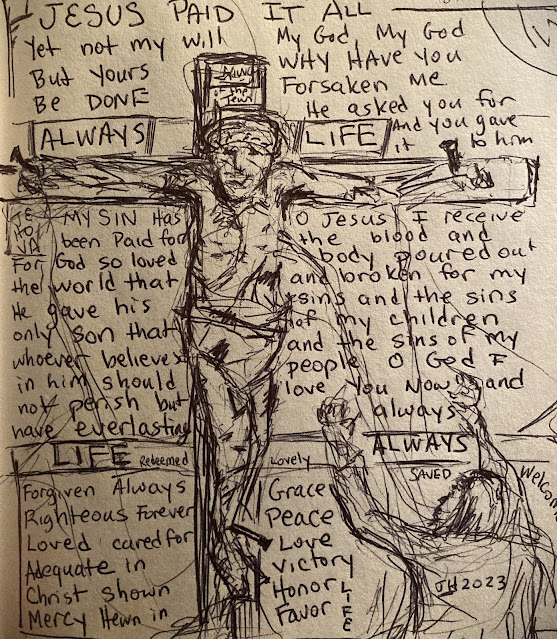 JESUS PAID IT ALL
Yet not my will
But yours
Be DONE
My God, My God
WHY HAVE You
Forsaken Me
He asked you for
And you gave
it to him
ALWAYS
LIFE
King
of the
Jews
JE
HO
VA
MY SIN Has
been Paid for
For God so loved
the world that
He gave his
only son that
whoever believes
in him should
not perish but
have everlasting
LIFE
O Jesus I receive
the blood and
body poured out
and broken for my
sins and the sins
of my children
and the sins of my
people O God I
love you Now and
always
ALWAYS
Redeemed
Lovely
SAVED
Forgiven Always
Righteous Forever
Loved cared for
Adequate in
Christ shown
Mercy Hewn in
Grace
Peace
Love
Victory
Honor
Favor
LIFE
JH2023